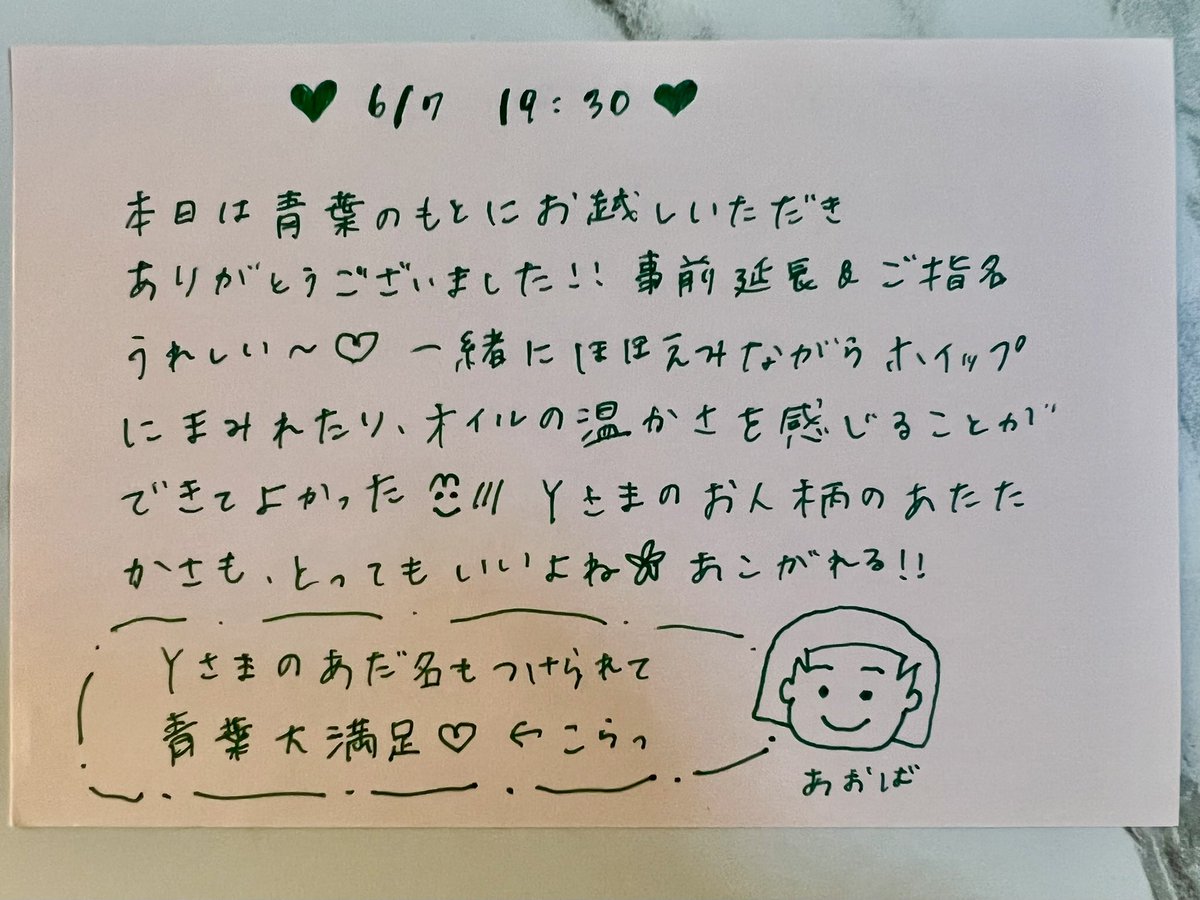 ♥ 6/7 19:30 ♥
本日は青葉のもとにお越しいただき
ありがとうございました!! 事前延長&ご指名
うれしい〜♡ 一緒にほほえみながらホイップ
にまみれたり、オイルの温かさを感じることが
できてよかった Yさまのお人柄のあたた
かさも、とってもいいよね あこがれる!!
Yさまのあだ名もつけられて
青葉大満足♡ ←こらっ
あおば